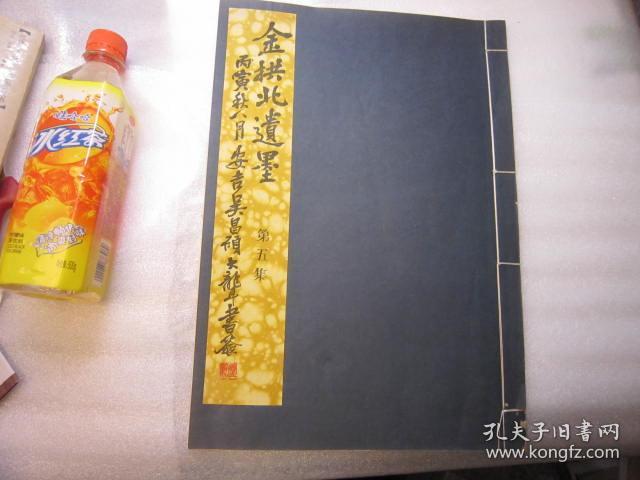 金拱北遺墨
第五集
丙寅秋八月安吉吴昌碩大聾年書簽
娃哈哈
冰红茶
孔夫子旧书网
www.kongfz.com